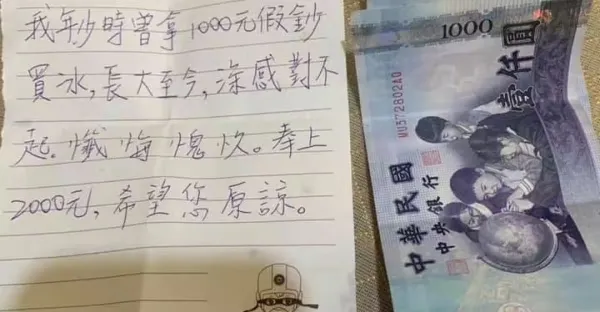 我年少時曾拿1000元假鈔
買冰,長大至今,深感對不
起。懺悔愧疚。奉上
2000元,希望您原諒。
1000
壹仟圓
WU572802AQ
中華民國
中央銀行